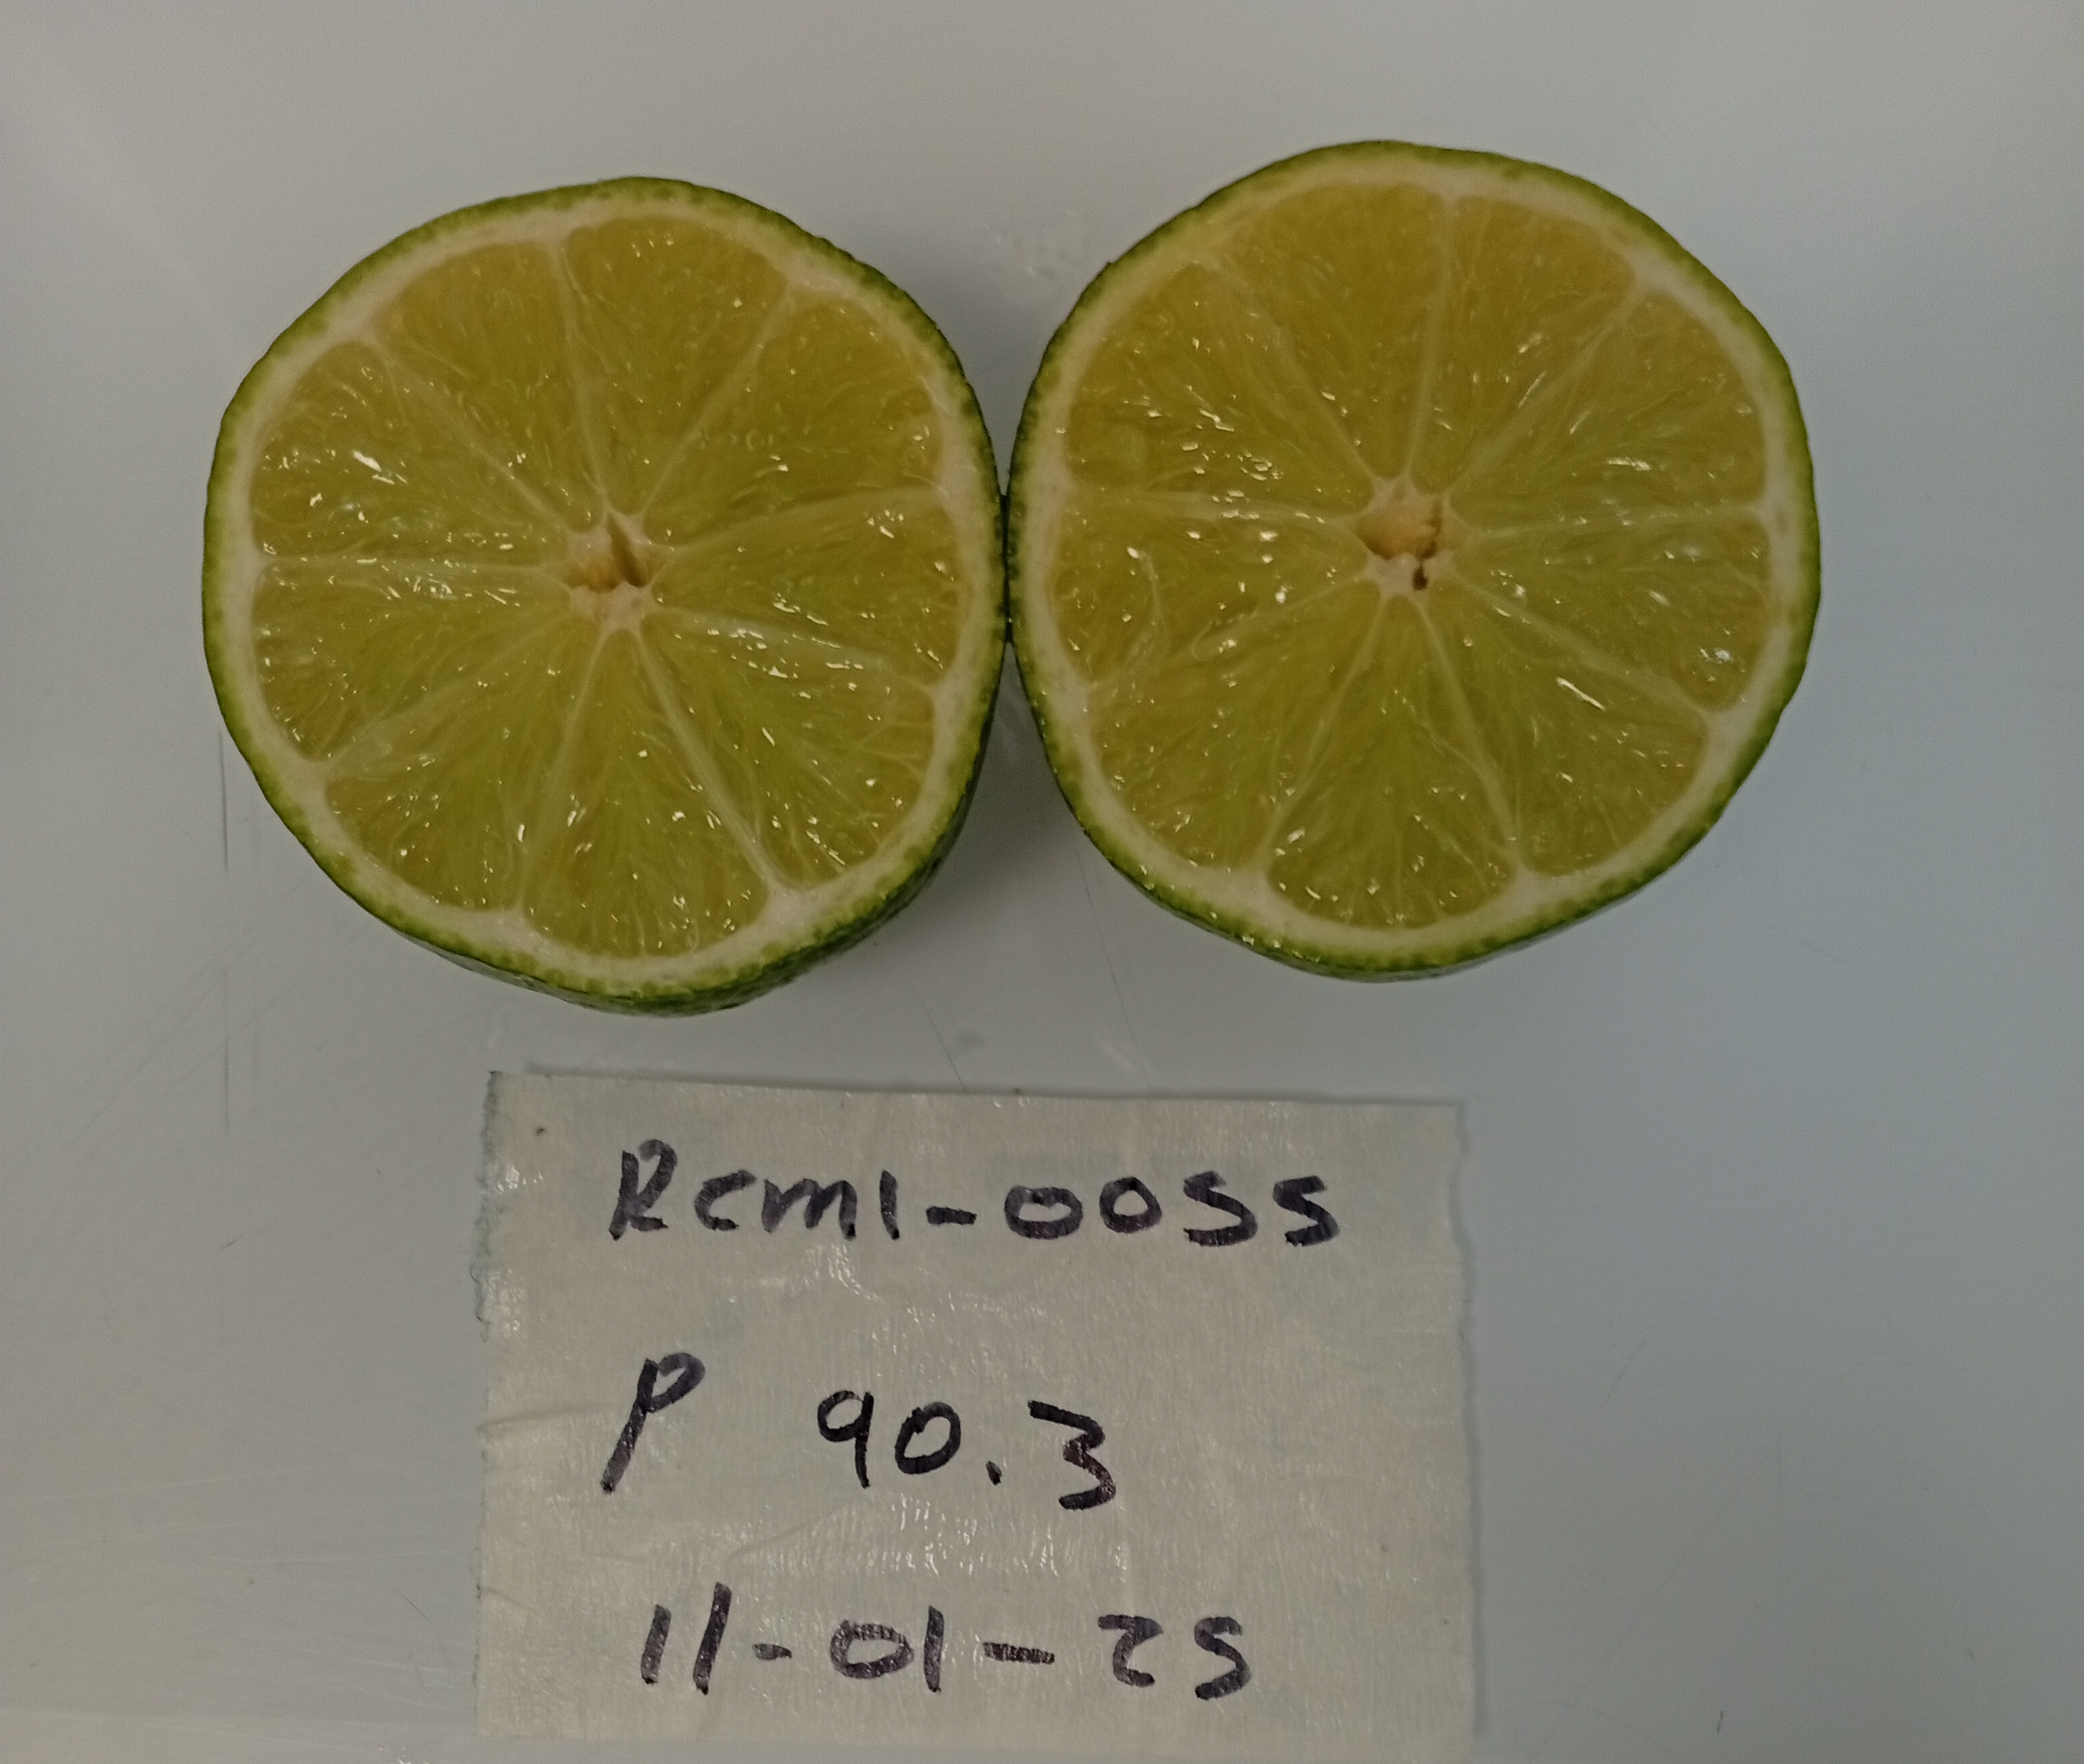 Rcm1-0055
P 90.3
11-01-25